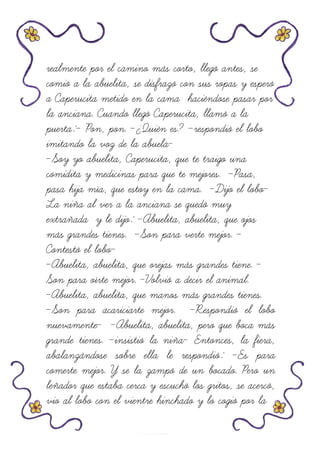 realmente por el camino más corto, llegó antes, se
comió a la abuelita, se disfrazó con sus ropas y esperó
a Caperucita metido en la cama haciéndose pasar por
la anciana. Cuando llegó Caperucita, llamó a la
puerta:- Pon, pon. -¿Quién es? -respondió el lobo
imitando la voz de la abuela-
-Soy yo abuelita, Caperucita, que te traigo una
comidita y medicinas para que te mejores. -Pasa,
pasa hija mía, que estoy en la cama. -Dijo el lobo-
La niña al ver a la anciana se quedó muy
extrañada y le dijo: -Abuelita, abuelita, que ojos
más grandes tienes. -Son para verte mejor. -
Contestó el lobo-
-Abuelita, abuelita, que orejas más grandes tiene. -
Son para oírte mejor. -Volvió a decir el animal.
-Abuelita, abuelita, que manos más grandes tienes.
-Son para acariciarte mejor. -Respondió el lobo
nuevamente- -Abuelita, abuelita, pero que boca más
grande tienes. -insistió la niña- Entonces, la fiera,
abalanzándose sobre ella le respondió: -Es para
comerte mejor. Y se la zampó de un bocado. Pero un
leñador que estaba cerca y escuchó los gritos, se acercó,
vio al lobo con el vientre hinchado y lo cogió por la